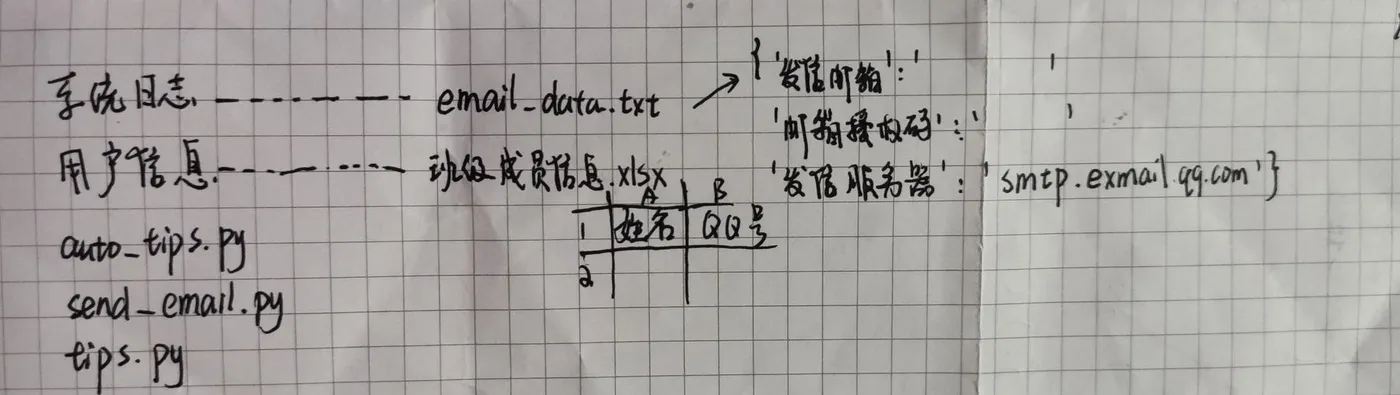 系统日志 ---------- email_data.txt → {'发信邮箱':' '
'邮箱授权码':' '
用户信息 ---------- 班级成员信息.xlsx '发信服务器':'smtp.exmail.qq.com'}
A B
1 姓名 QQ号
2
auto_tips.py
send_email.py
tips.py